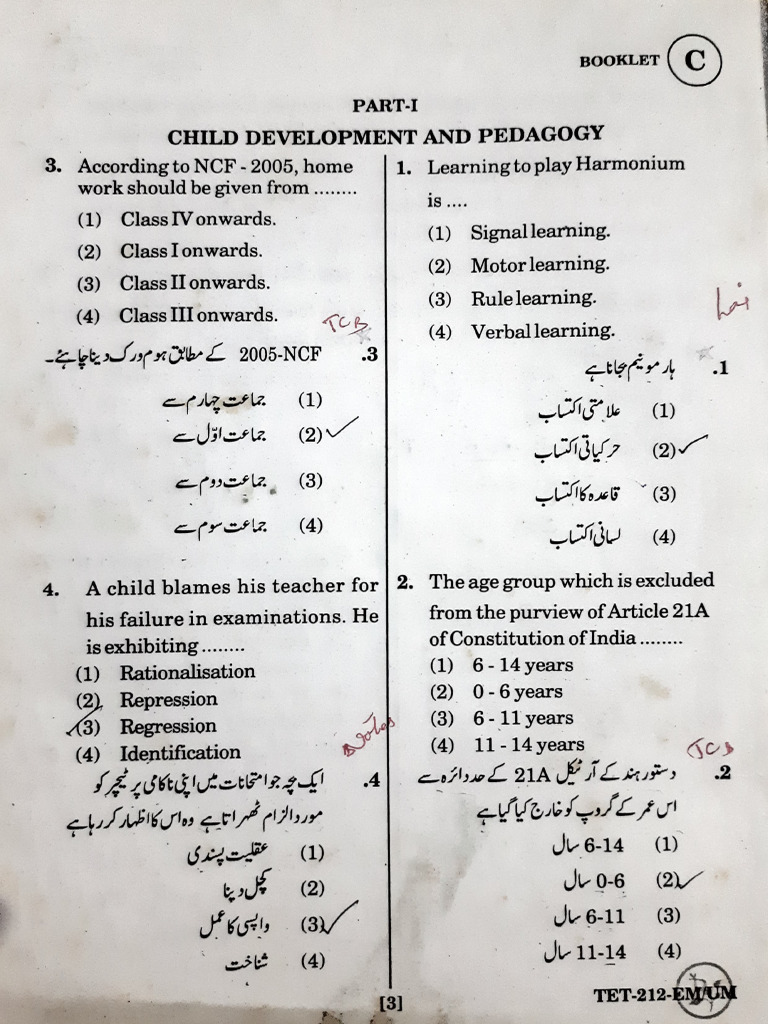 BOOKLET C
PART-I
CHILD DEVELOPMENT AND PEDAGOGY
3. According to NCF - 2005, home
work should be given from ........
(1) Class IV onwards.
(2) Class I onwards.
(3) Class II onwards.
(4) Class III onwards.
TCB
3. 2005-NCF کے مطابق ہوم ورک دینا چاہئے۔
(1) جماعت چہارم سے
(2) جماعت اوّل سے
(3) جماعت دوم سے
(4) جماعت سوم سے
4. A child blames his teacher for
his failure in examinations. He
is exhibiting ........
(1) Rationalisation
(2) Repression
(3) Regression
(4) Identification
Notes
4. ایک بچہ جو امتحانات میں اپنی ناکامی پر ٹیچر کو
مورد الزام ٹھہراتا ہے وہ اس کا اظہار کر رہا ہے
(1) عقلیت پسندی
(2) کچل دینا
(3) واپسی کا عمل
(4) شناخت
1. Learning to play Harmonium
is ....
(1) Signal learning.
(2) Motor learning.
(3) Rule learning.
(4) Verbal learning.
1. ہارمونیم بجانا ہے
(1) علامتی اکتساب
(2) حرکیاتی اکتساب
(3) قاعدہ کا اکتساب
(4) لسانی اکتساب
2. The age group which is excluded
from the purview of Article 21A
of Constitution of India ........
(1) 6 - 14 years
(2) 0 - 6 years
(3) 6 - 11 years
(4) 11 - 14 years
2. دستور ہند کے آرٹیکل 21A کے حد دائرہ سے
اس عمر کے گروپ کو خارج کیا گیا ہے
(1) 6-14 سال
(2) 0-6 سال
(3) 6-11 سال
(4) 11-14 سال
[3]
TET-212-EM/UM